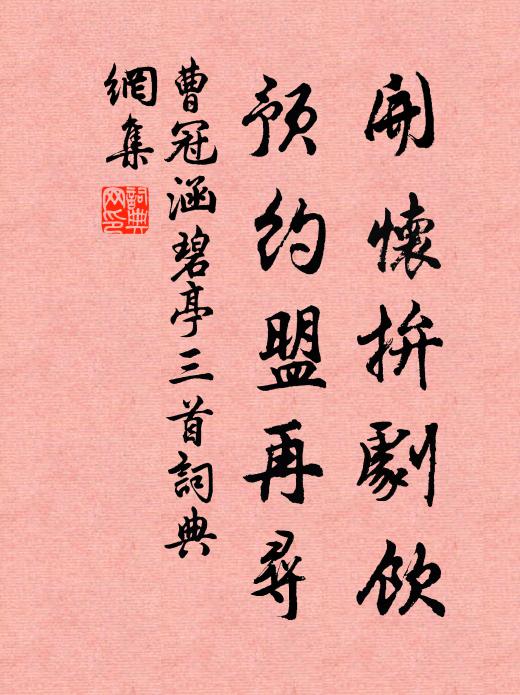 開懷拚劇飲
預約盟再尋
曹冠涵碧亭三首詞典
網集
詞典網印